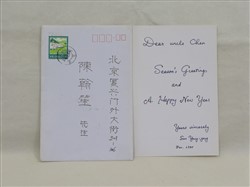 北京复兴门外大街
陳翰笙 先生
Dear uncle Chen
Season's Greeting
and
A Happy New Year
Yours sincerely
Dec. 1980